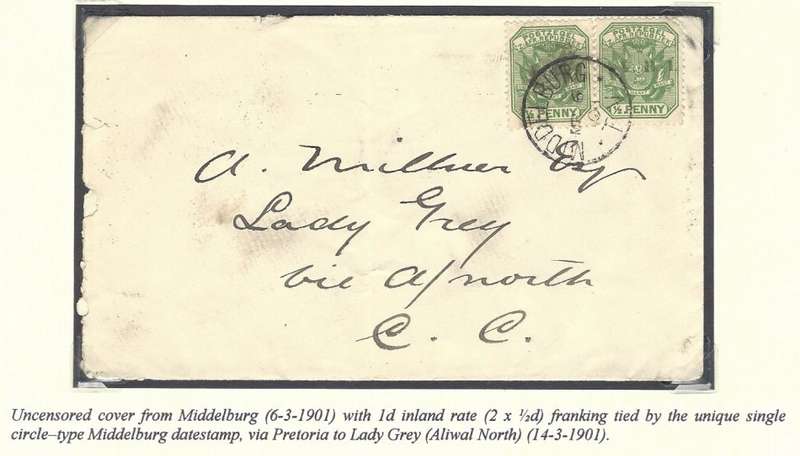 POSTZEGEL POSTZEGEL
Z. AFR. REPUBLIEK Z. AFR. REPUBLIEK
PENNY ½ PENNY
MIDDELBURG
A. Millner Esq
Lady Grey
via A/North
C. C.
Uncensored cover from Middelburg (6-3-1901) with 1d inland rate (2 x ½d) franking tied by the unique single
circle–type Middelburg datestamp, via Pretoria to Lady Grey (Aliwal North) (14-3-1901).